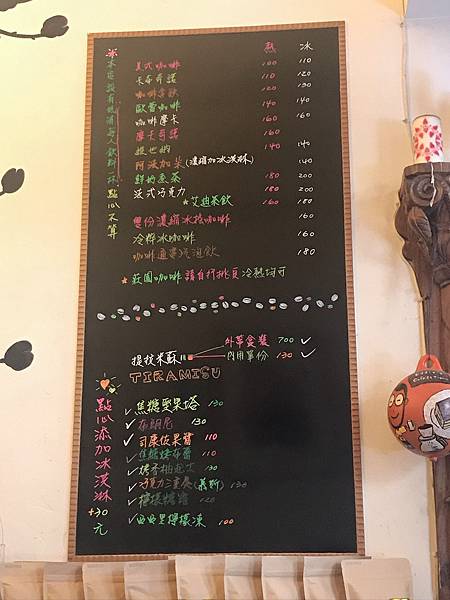 熱 冰
美式咖啡 100 110
卡布奇諾 110 120
咖啡拿鐵 120 130
歐蕾咖啡 140 140
咖啡摩卡 160 160
摩卡奇諾 160
維也納 140 140
阿法加朵(濃縮加冰淇淋) 140
鮮奶煮茶 180 200
法式巧克力 180 200
★艾迪茶飲 160 200
雙份濃縮冰搖咖啡 160
冷粹冰咖啡 160
咖啡通寧氣泡飲 180
★莊園咖啡 請自行挑頁 冷熱均可
※本店設有低消每人飲料一杯 點心不算
提拉米蘇
外帶盒裝 700 ✓
內用單份 130 ✓
TIRAMISU
✓焦糖堅果塔 130
✓布朗尼 130
✓司康佐果醬 110
✓焦糖烤布蕾 110
✓烤香柚起士 130
✓巧克力(慕斯) 130
✓檸檬糖霜 120
✓西西里檸檬凍 100
點心添加冰淇淋+30元